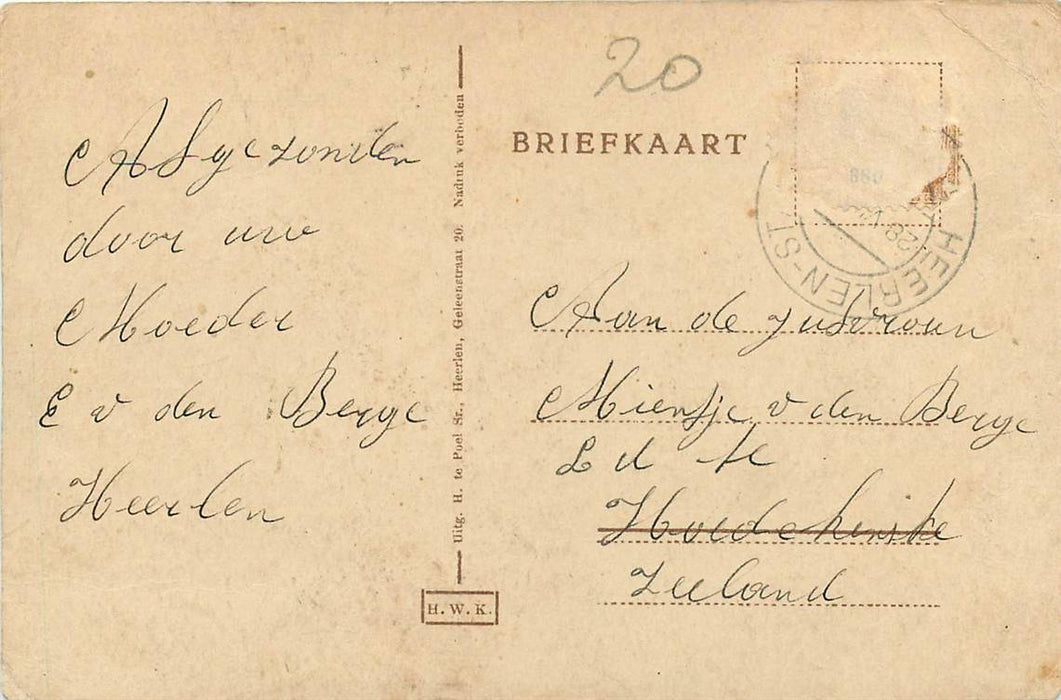 20
BRIEFKAART
HEERLEN-ST
28
Afgezonden
door uw
Moeder
E v den Berge
Heerlen
Uitg. H. te Poel Sr., Heerlen, Geleenstraat 20. Nadruk verboden
H. W. K.
Aan de Jufvrouw
Mientje v den Berge
te
Hoedekenske
Zeeland